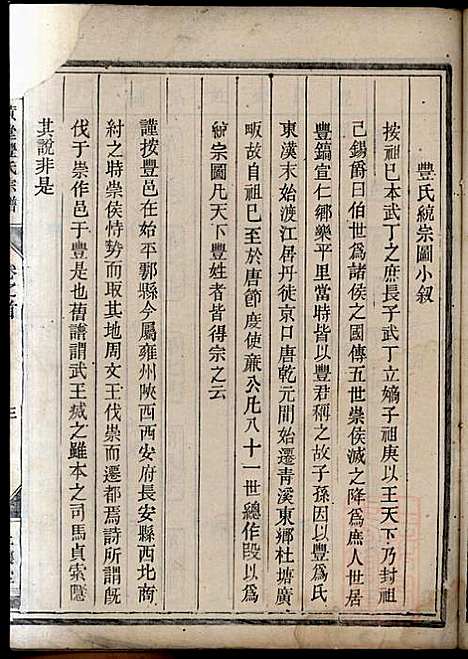 豐氏統宗圖小叙
按祖巳本武丁之庶長子武丁立嫡子祖庚以王天下乃封祖
己錫爵曰伯世爲諸侯之國傳五世崇侯滅之降爲庶人世居
豐鎬宣仁鄉樂平里當時皆以豐君稱之故子孫因以豐爲氏
東漢末始渡江居丹徒京口唐乾元間始遷青溪東鄉杜塘廣
畈故自祖巳至於唐節度使亷公凡八十一世總作段以爲
統宗圖凡天下豐姓者皆得宗之云
謹按豐邑在始平鄠縣今屬雍州陝西西安府長安縣西北商
紂之時崇侯恃勢而取其地周文王伐崇而遷都焉詩所謂旣
伐于崇作邑于豐是也舊譜謂武王烕之雖本之司馬貞索隱
其說非是
豐氏宗譜
卷之首
三